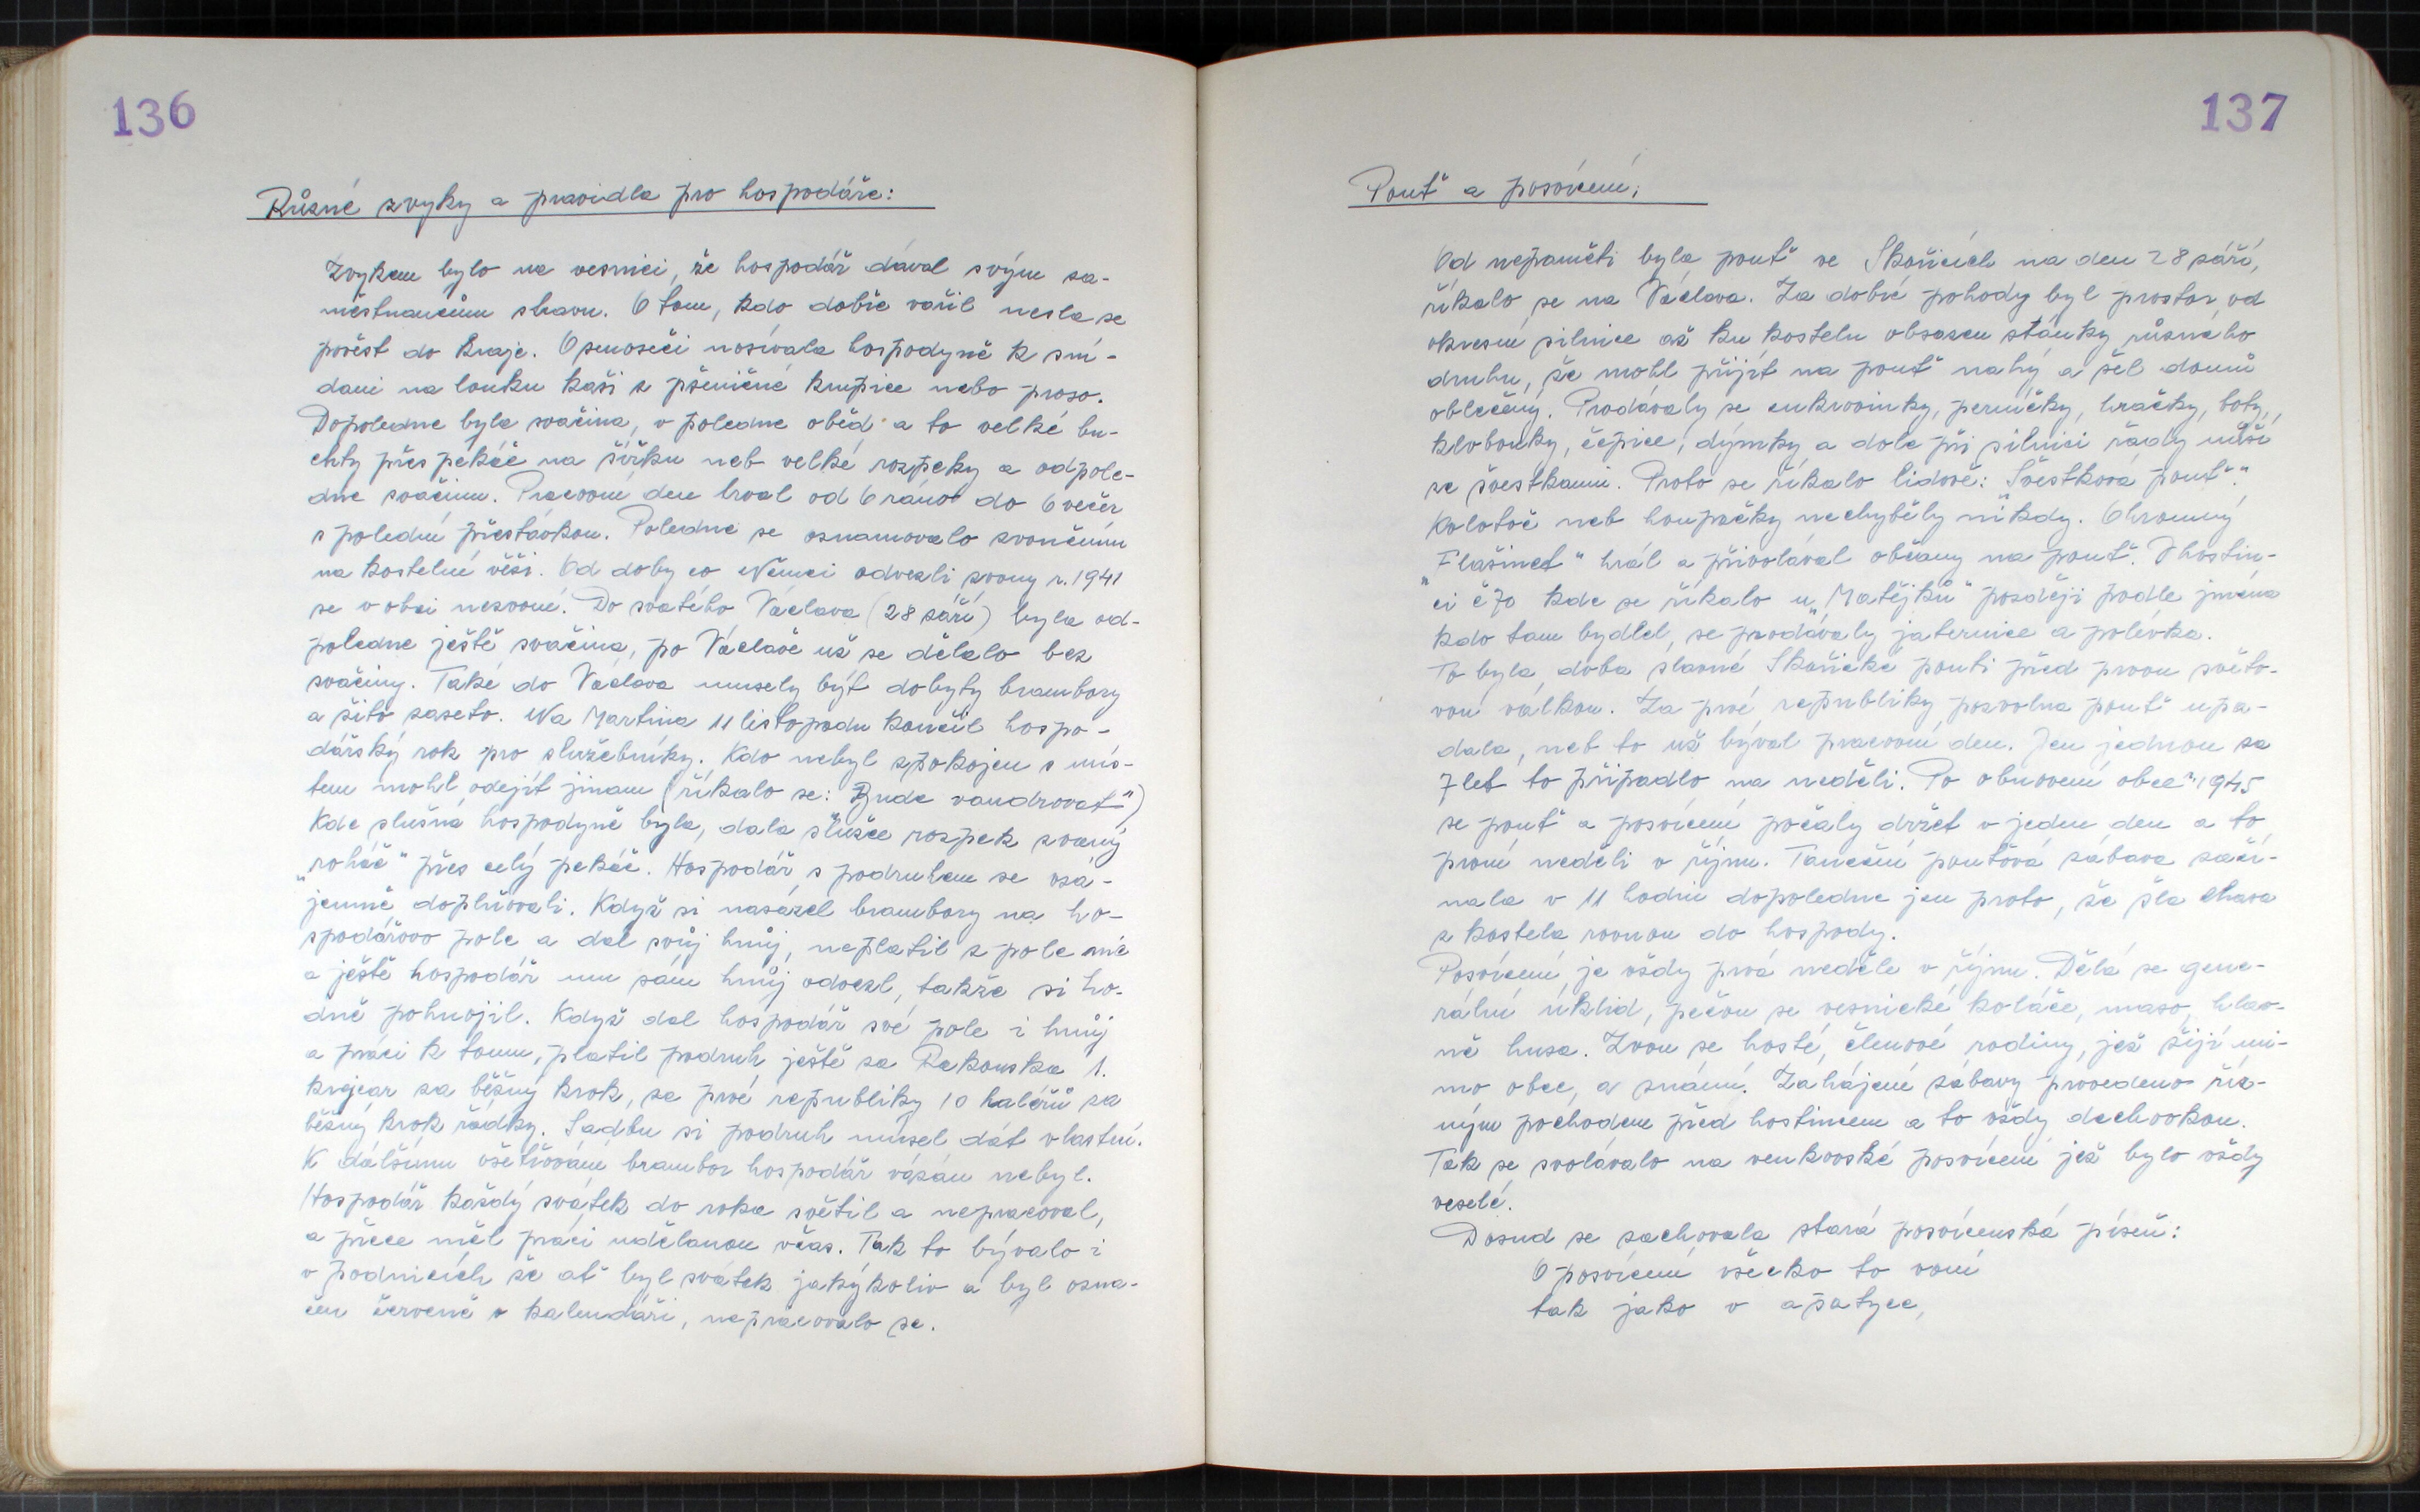 136
Různé zvyky a pravidla pro hospodáře:
Zvykem bylo na vesnici, že hospodář dával svým za-
městnancům stravu. O tom, kdo dobře vařil nesla se
pověst do kraje. O senoseči nosívala hospodyně k sní-
dani na louku kaši z pšeničné krupice nebo proso.
Dopoledne byla svačina, v poledne oběd a to velké bu-
chty přes pekáč na šířku neb velké rozpeky a odpole-
dne svačinu. Pracovní den trval od 6 ráno do 6 večer
s polední přestávkou. Poledne se oznamovalo zvoněním
na kostelní věži. Od doby co Němci odvezli zvony r. 1941
se v obci nezvoní. Do svatého Václava (28 září) byla od-
poledne ještě svačina, po Václavě už se dělalo bez
svačiny. Také do Václava musely být dobyty brambory
a žito zaseto. Na Martina 11 listopadu končil hospo-
dářský rok pro služebníky. Kdo nebyl spokojen s mís-
tem mohl odejít jinam (říkalo se: Bude vandrovat")
Kde slušná hospodyně byla, dala služce rozpek zvaný
"roháč" přes celý pekáč. Hospodář s podruhem se vzá-
jemně doplňovali. Když si nasázel brambory na ho-
spodářovo pole a dal svůj hnůj, neplatil z pole nic
a ještě hospodář mu sám hnůj odvezl, takže si ho-
dně pohnojil. Když dal hospodář své pole i hnůj
a práci k tomu, platil podruh ještě za Rakouska 1.
krejcar za běžný krok, za prvé republiky 10 haléřů za
běžný krok řádky. Sadbu si podruh musel dát vlastní.
K dálšímu ošetřování brambor hospodář vázán nebyl.
Hospodář každý svátek do roka světil a nepracoval,
a přece měl práci udělanou včas. Tak to bývalo i
v podnicích že ať byl svátek jakýkoliv a byl ozna-
čen červeně v kalendáři, nepracovalo se.
137
Pouť a posvícení:
Od nepaměti byla pouť ve Skořicích na den 28 září,
říkalo se na Václava. Za dobré pohody byl prostor od
okresní silnice až ku kostelu obsazen stánky různého
druhu, že mohl přijít na pouť nahý a šel domů
oblečený. Prodávaly se cukrovinky, perníčky, hračky, boty,
klobouky, čepice, dýmky a dole při silnici řady nůší
se švestkami. Proto se říkalo lidově: "Švestková pouť."
Kolotoč neb houpačky nechyběly nikdy. Ohromný
"Flašinet" hrál a přivolával občany na pouť. V hostin-
ci č 70 kde se říkalo u "Matějků" později podle jména
kdo tam bydlel, se prodávaly jaternice a polévka.
To byla doba slavné Skořické pouti před prvou světo-
vou válkou. Za prvé republiky pozvolna pouť upa-
dala, neb to už býval pracovní den. Jen jednou za
7 let to připadlo na neděli. Po obnovení obce r 1945
se pouť a posvícení počaly držet v jeden den a to
první neděli v říjnu. Taneční pouťová zábava začí-
nala v 11 hodin dopoledne jen proto, že šla chasa
z kostela rovnou do hospody.
Posvícení je vždy prvá neděle v říjnu. Dělá se gene-
rální úklid, pečou se vesnické koláče, maso, hlav-
ně husa. Zvou se hosté, členové rodiny, jež žijí mi-
mo obec, a známí. Zahájení zábavy provedeno říz-
ným pochodem před hostincem a to vždy dechovkou.
Tak se svolávalo na venkovské posvícení jež bylo vždy
veselé.
Dosud se zachovala stará posvícenská píseň:
O posvícení všecko to voní
tak jako v apatyce,